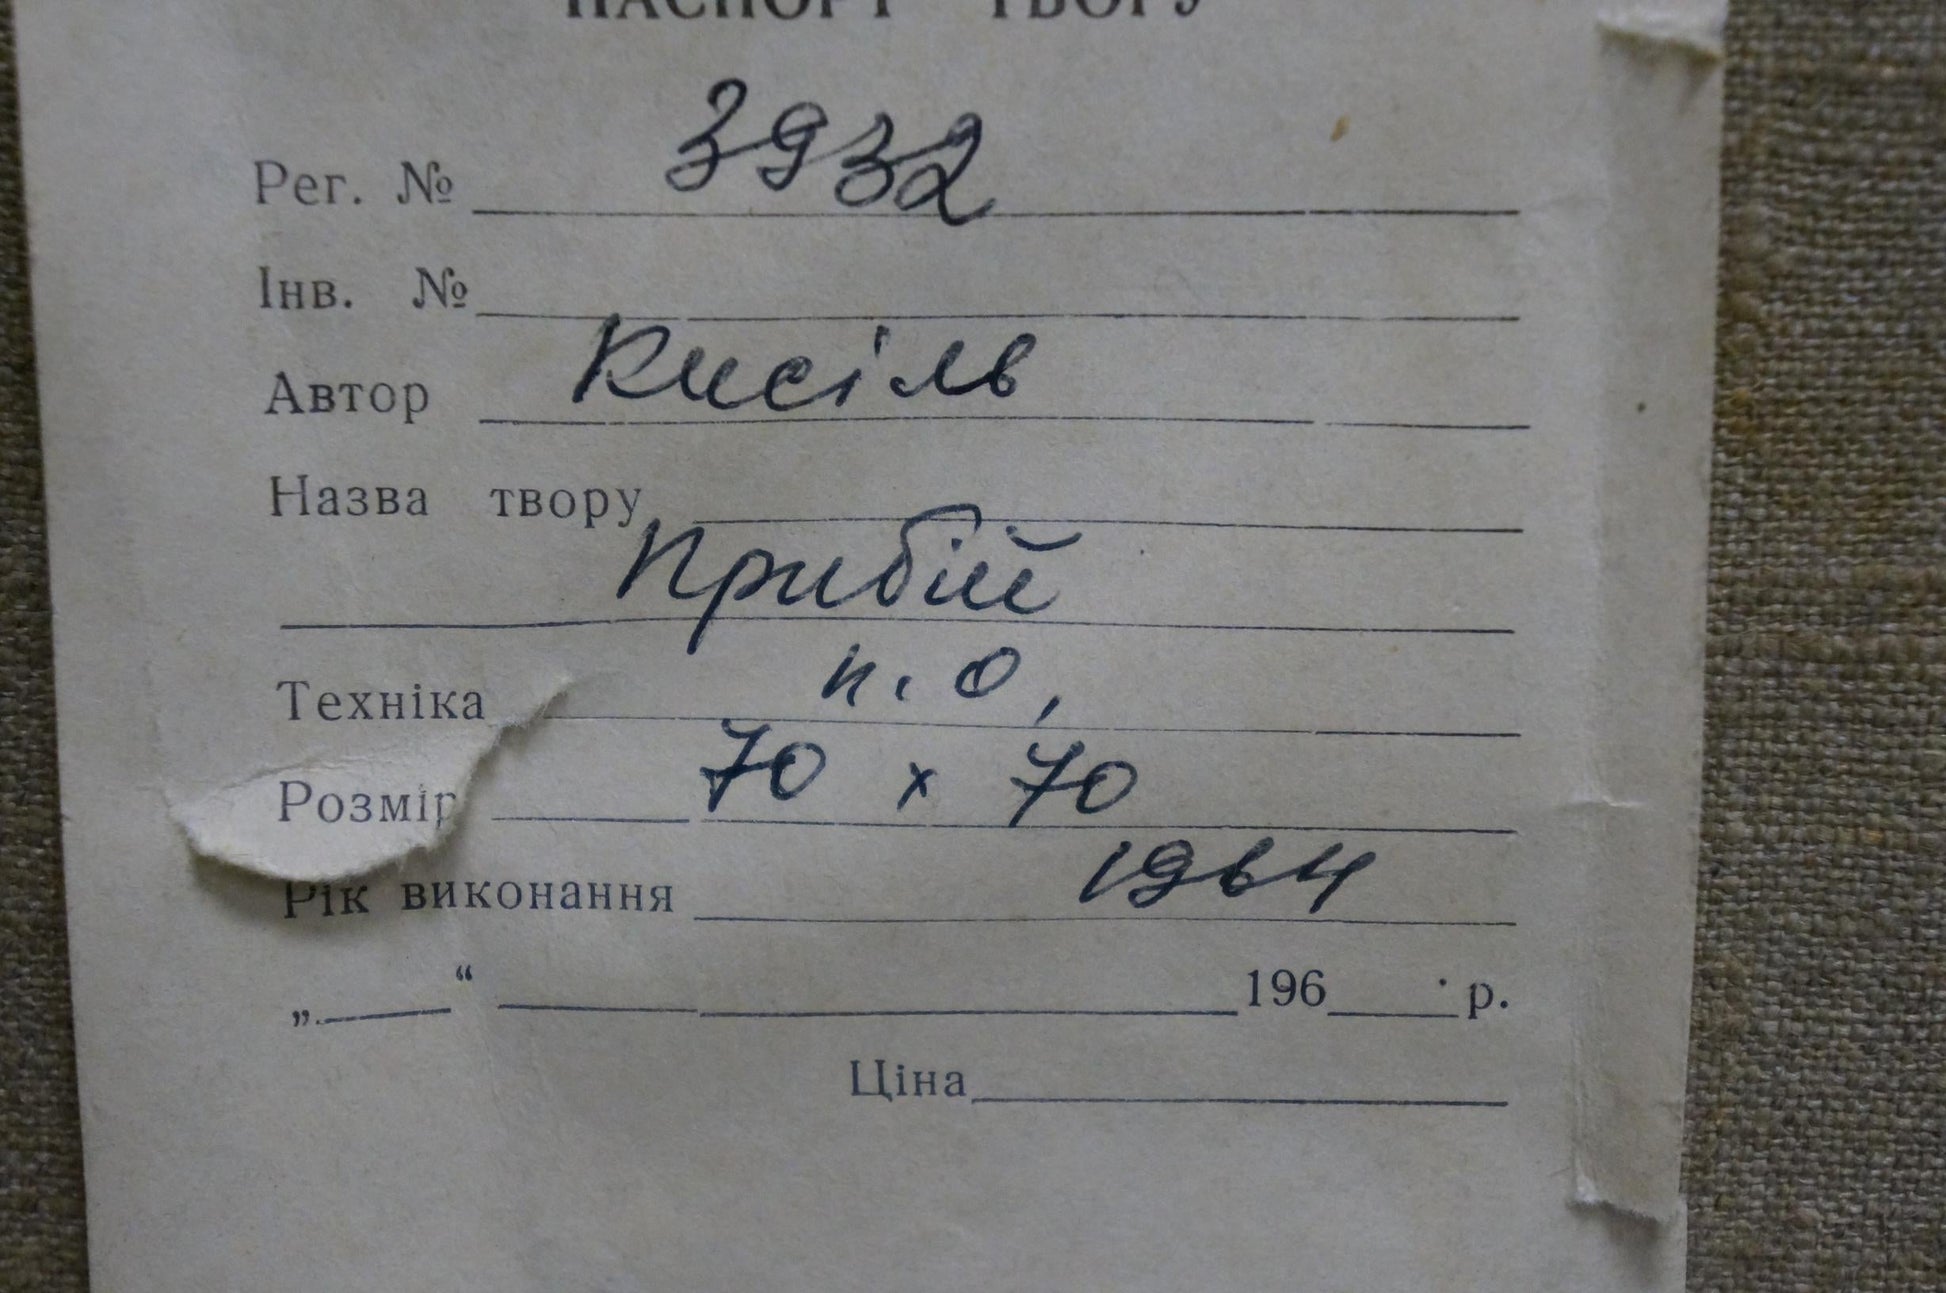 ПАСПОРТ ТВОРУ
Рег. № 3932
Інв. №
Автор Кисіль
Назва твору
Прибій
Техніка п. о,
Розмір 70 x 70
Рік виконання 1964
„ “ 196 р.
Ціна